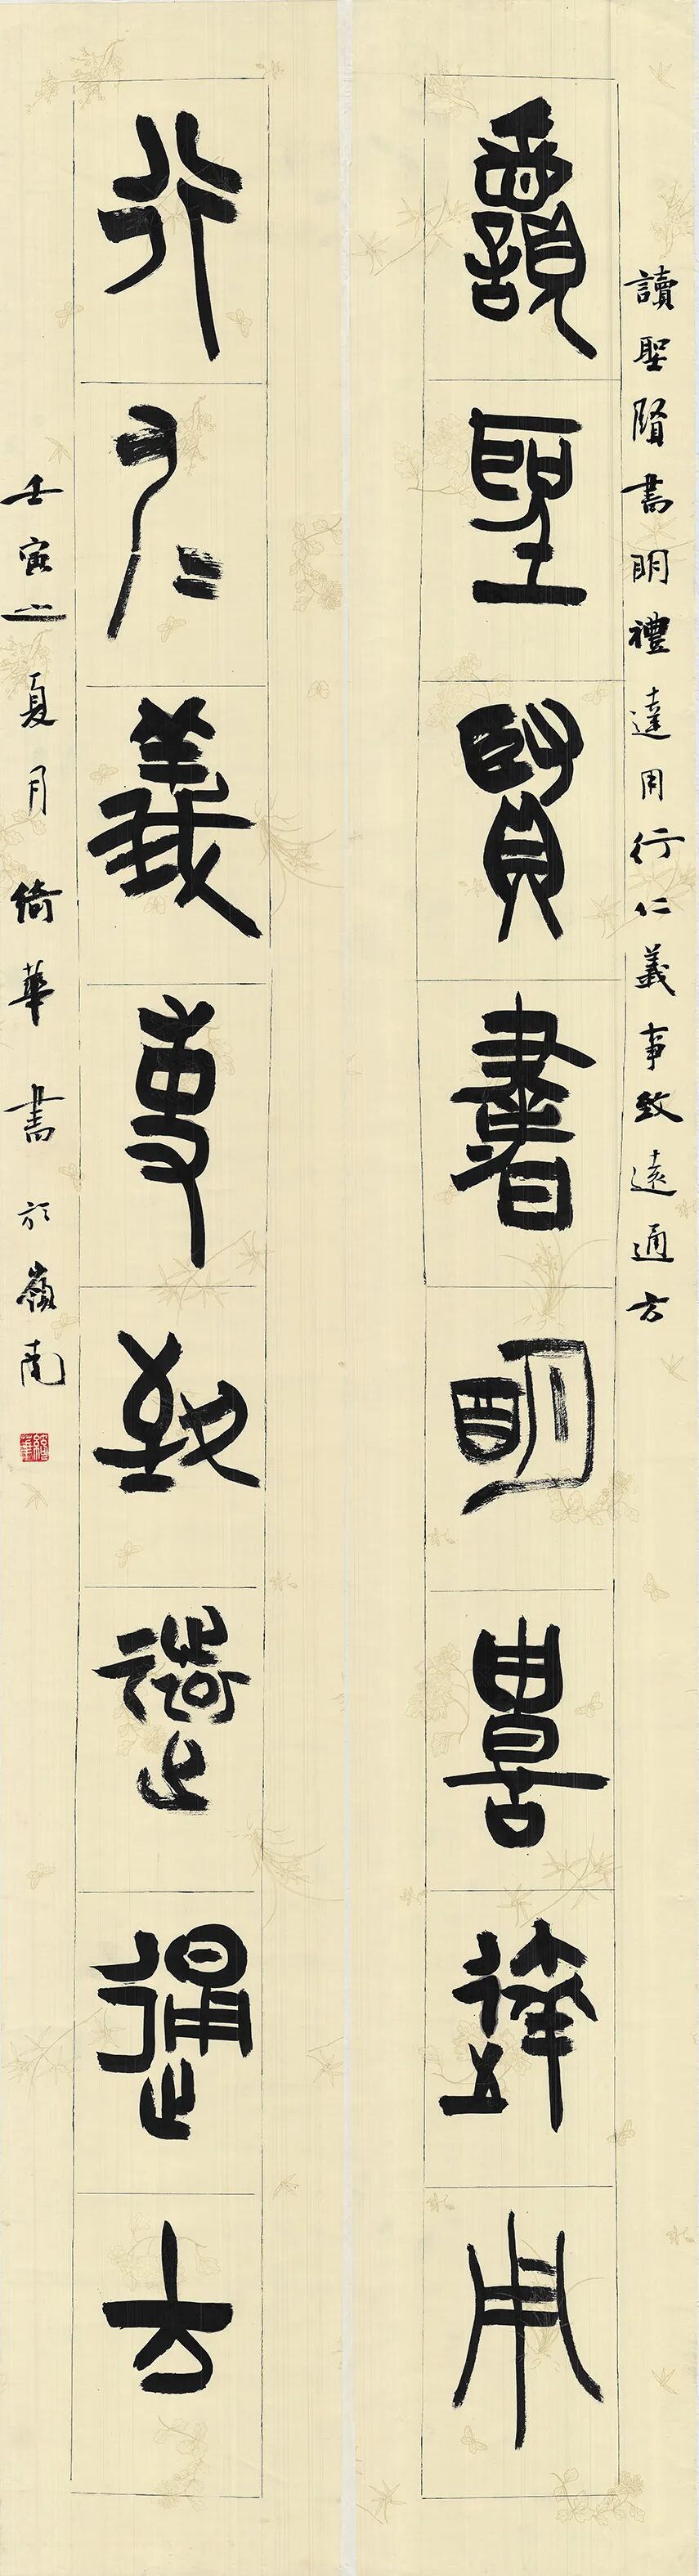 讀聖賢書明禮達用行仁義事致遠通方
讀聖賢書明禮達用
行仁義事致遠通方
壬寅之夏月綺華書於嶺南
綺華